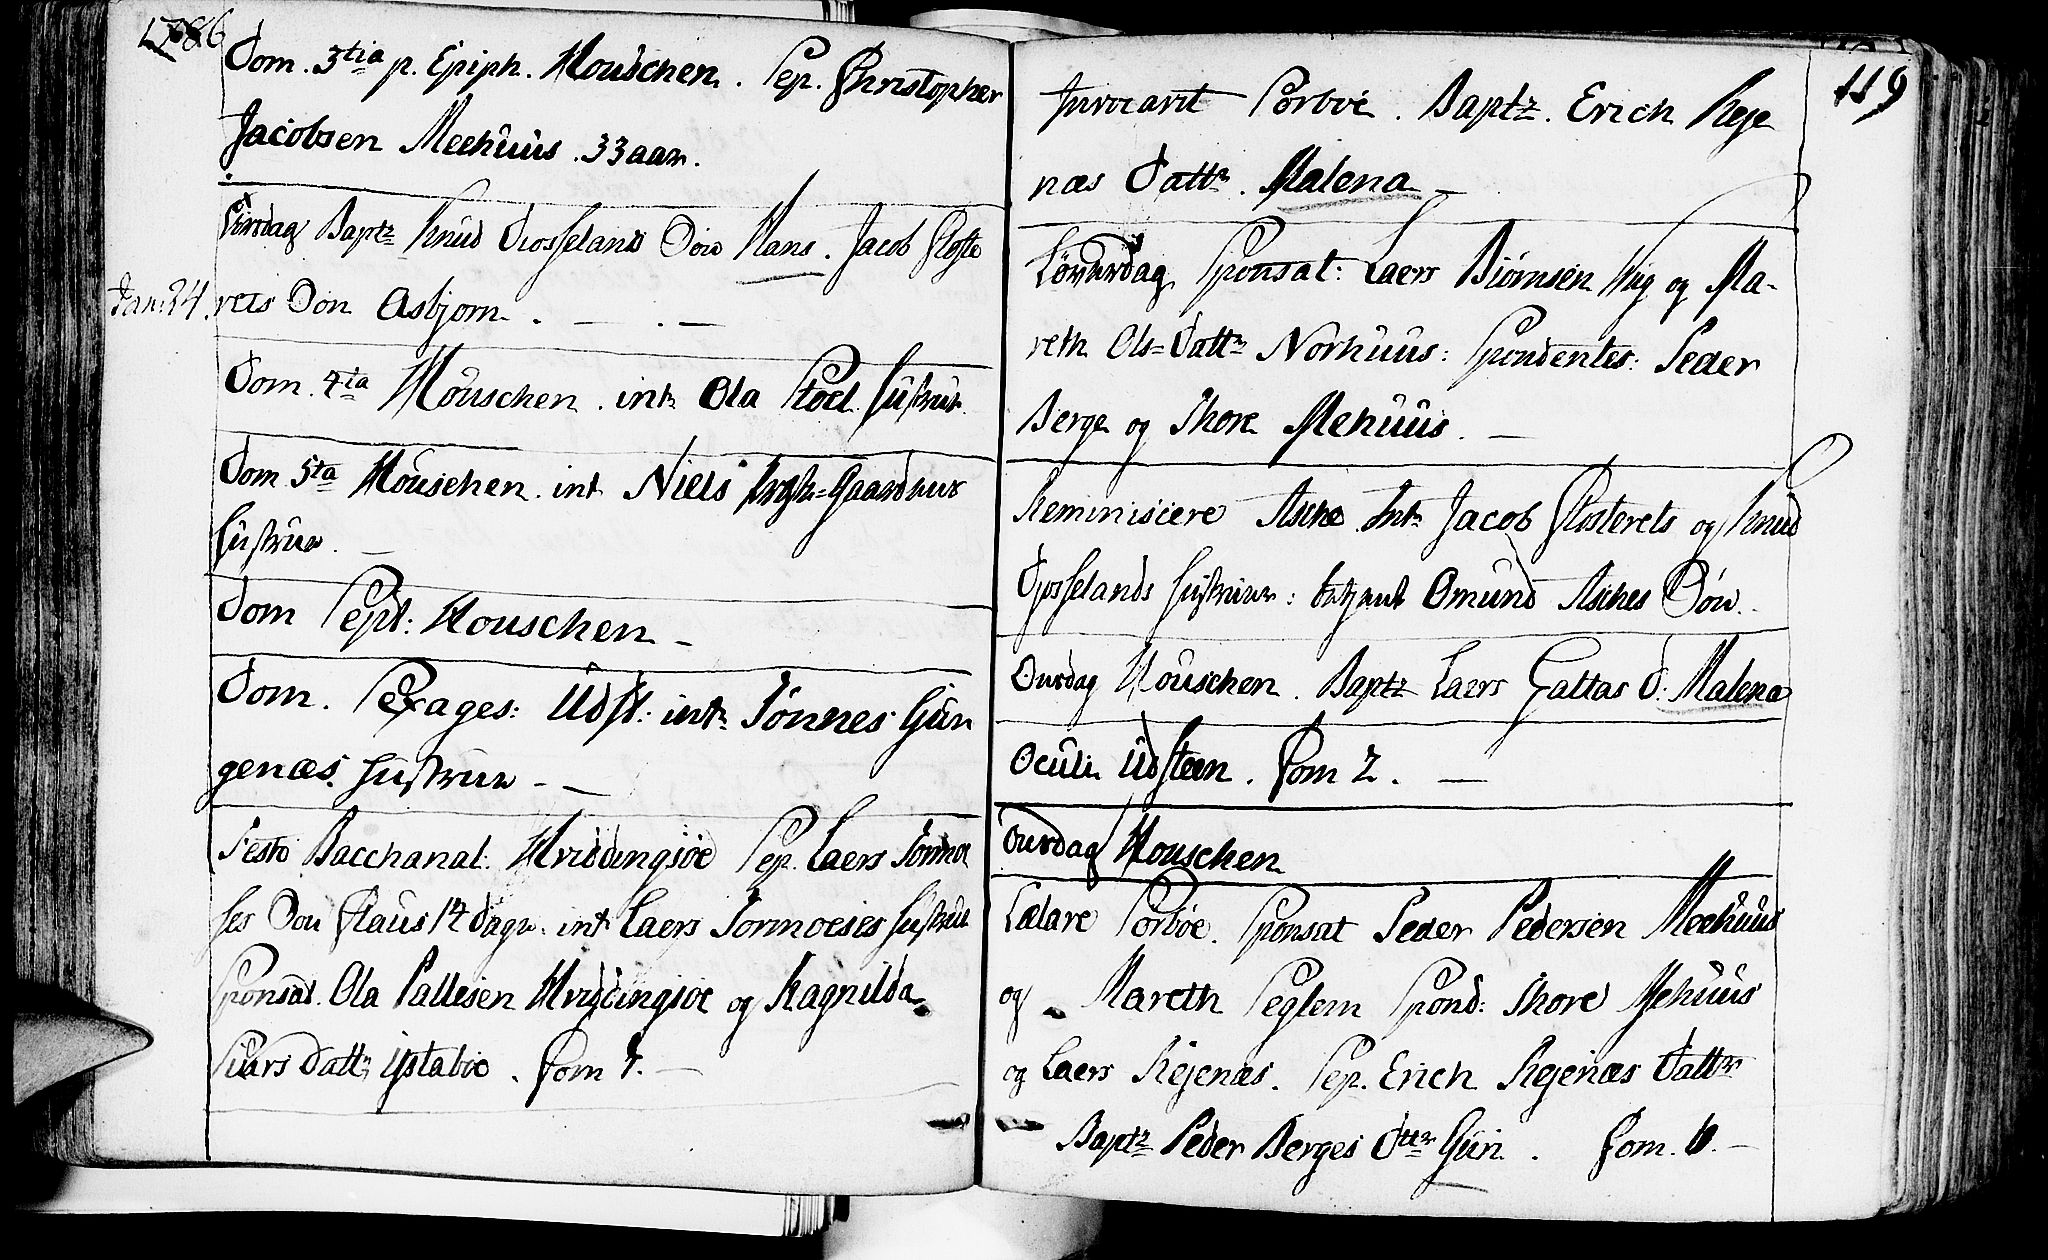 1786
Dom. 3tia p. Epiph. Houschen. Sep. Christopher
Jacobsen Meehuus. 33 aar.
Baptz Knud Diosseland Søn Hans. Jacob Closte
Jan: 24. rets Søn Asbjorn.
Dom. 4ta Houschen. intr Ola Stoel hustrue.
Dom 5ta Houschen. int Niels Gaard
hustrue.
Dom Sept: Houschen
Dom. Sexages: Udst: intr Tónnes Gun
genæs hustrue
Festo Bacchanal: Hviddingsøe Sep. Laers Sormoe
ses Søn Claus 14 dage. intr Laers Sormoeses hustrue
Sponsat. Ola Pallesen Hviddingsøe og Ragnilda
Siurs dattr Ystabøe. Com 7.
119
Invocavit Sorbøe. Baptz. Erich Reje
næs Dattr. Malena
Løverdag Sponsat: Laers Biørnsen Wiig og Ma-
reth Ols=Dattr Norhuus: Spondentes: Peder
Berge og Thore Mehuus.
Reminiscere Aske Intr Jacob Closterets og Knud
Diosselands hustruer: Omund Askes Søn.
Onsdag Houschen. Baptz Laers Galtas D: Malena
Oculi Udsteen. Com 2.
Onsdag Houschen
Lætare Sorbøe. Sponsat Peder Pedersen Meehuus
og Mareth Seglem Spond: Thore Mehuus
og Laers Rejenæs. Sep. Erich Rejenæs Dattr
Baptz Peder Berges Dttr Guri. Com. 6.